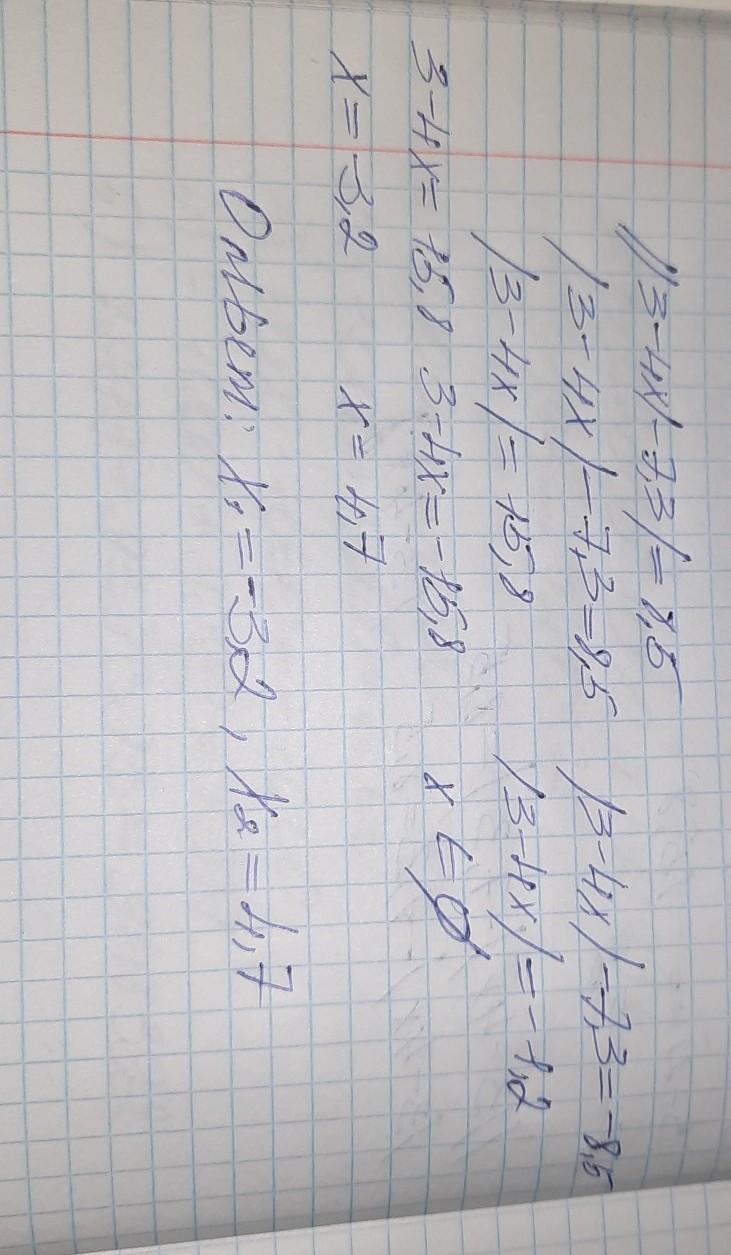 ||3-4x|-7,3|=8,5
|3-4x|-7,3=8,5 |3-4x|-7,3=-8,5
|3-4x|=15,8 |3-4x|=-1,2
3-4x=15,8 3-4x=-15,8 x∈∅
x=-3,2 x=4,7
Ответ: x₁=-3,2, x₂=4,7